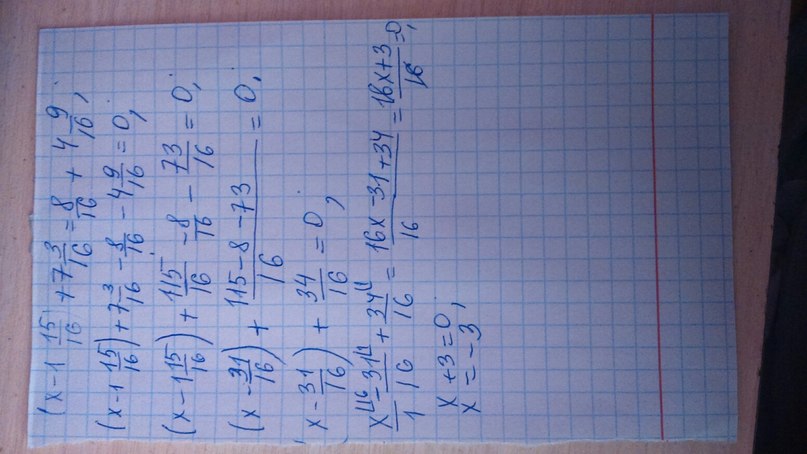 (x-1 15/16) + 7 3/16 = 8/16 + 4 9/16;
(x-1 15/16) + 7 3/16 - 8/16 - 4 9/16 = 0;
(x-1 15/16) + 115/16 - 8/16 - 73/16 = 0;
(x - 31/16) + (115-8-73)/16 = 0;
(x - 31/16) + 34/16 = 0;
x/1 - 31/16 + 34/16 = (16x-31+34)/16 = (16x+3)/16 = 0;
x+3=0;
x=-3;